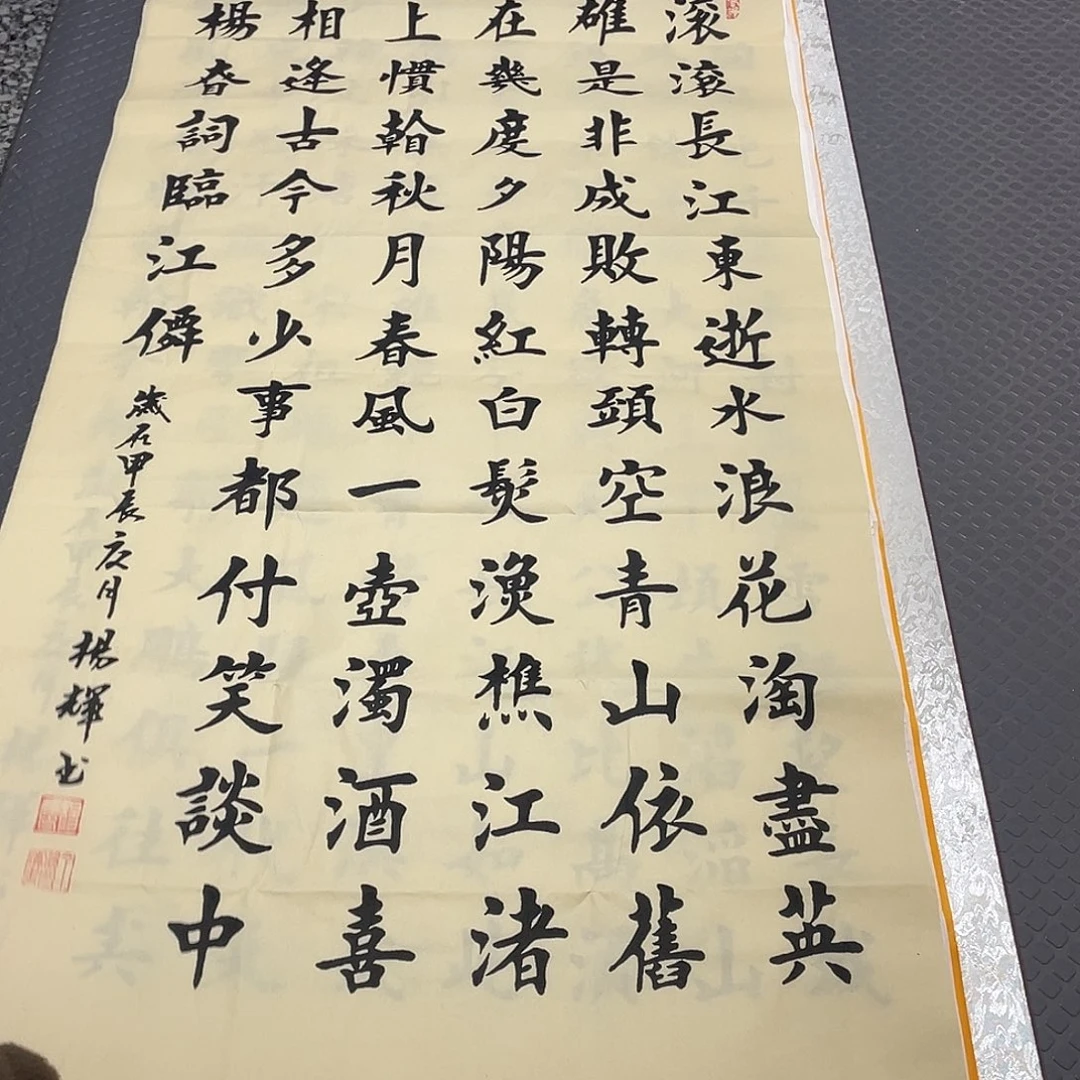 滚滚長江東逝水浪花淘盡英
雄是非成敗轉頭空青山依舊
在幾度夕陽紅白髮漁樵江渚
上慣看秋月春風一壺濁酒喜
相逢古今多少事都付笑談中
楊昚詞臨江僊
歲在甲辰夏月楊輝书